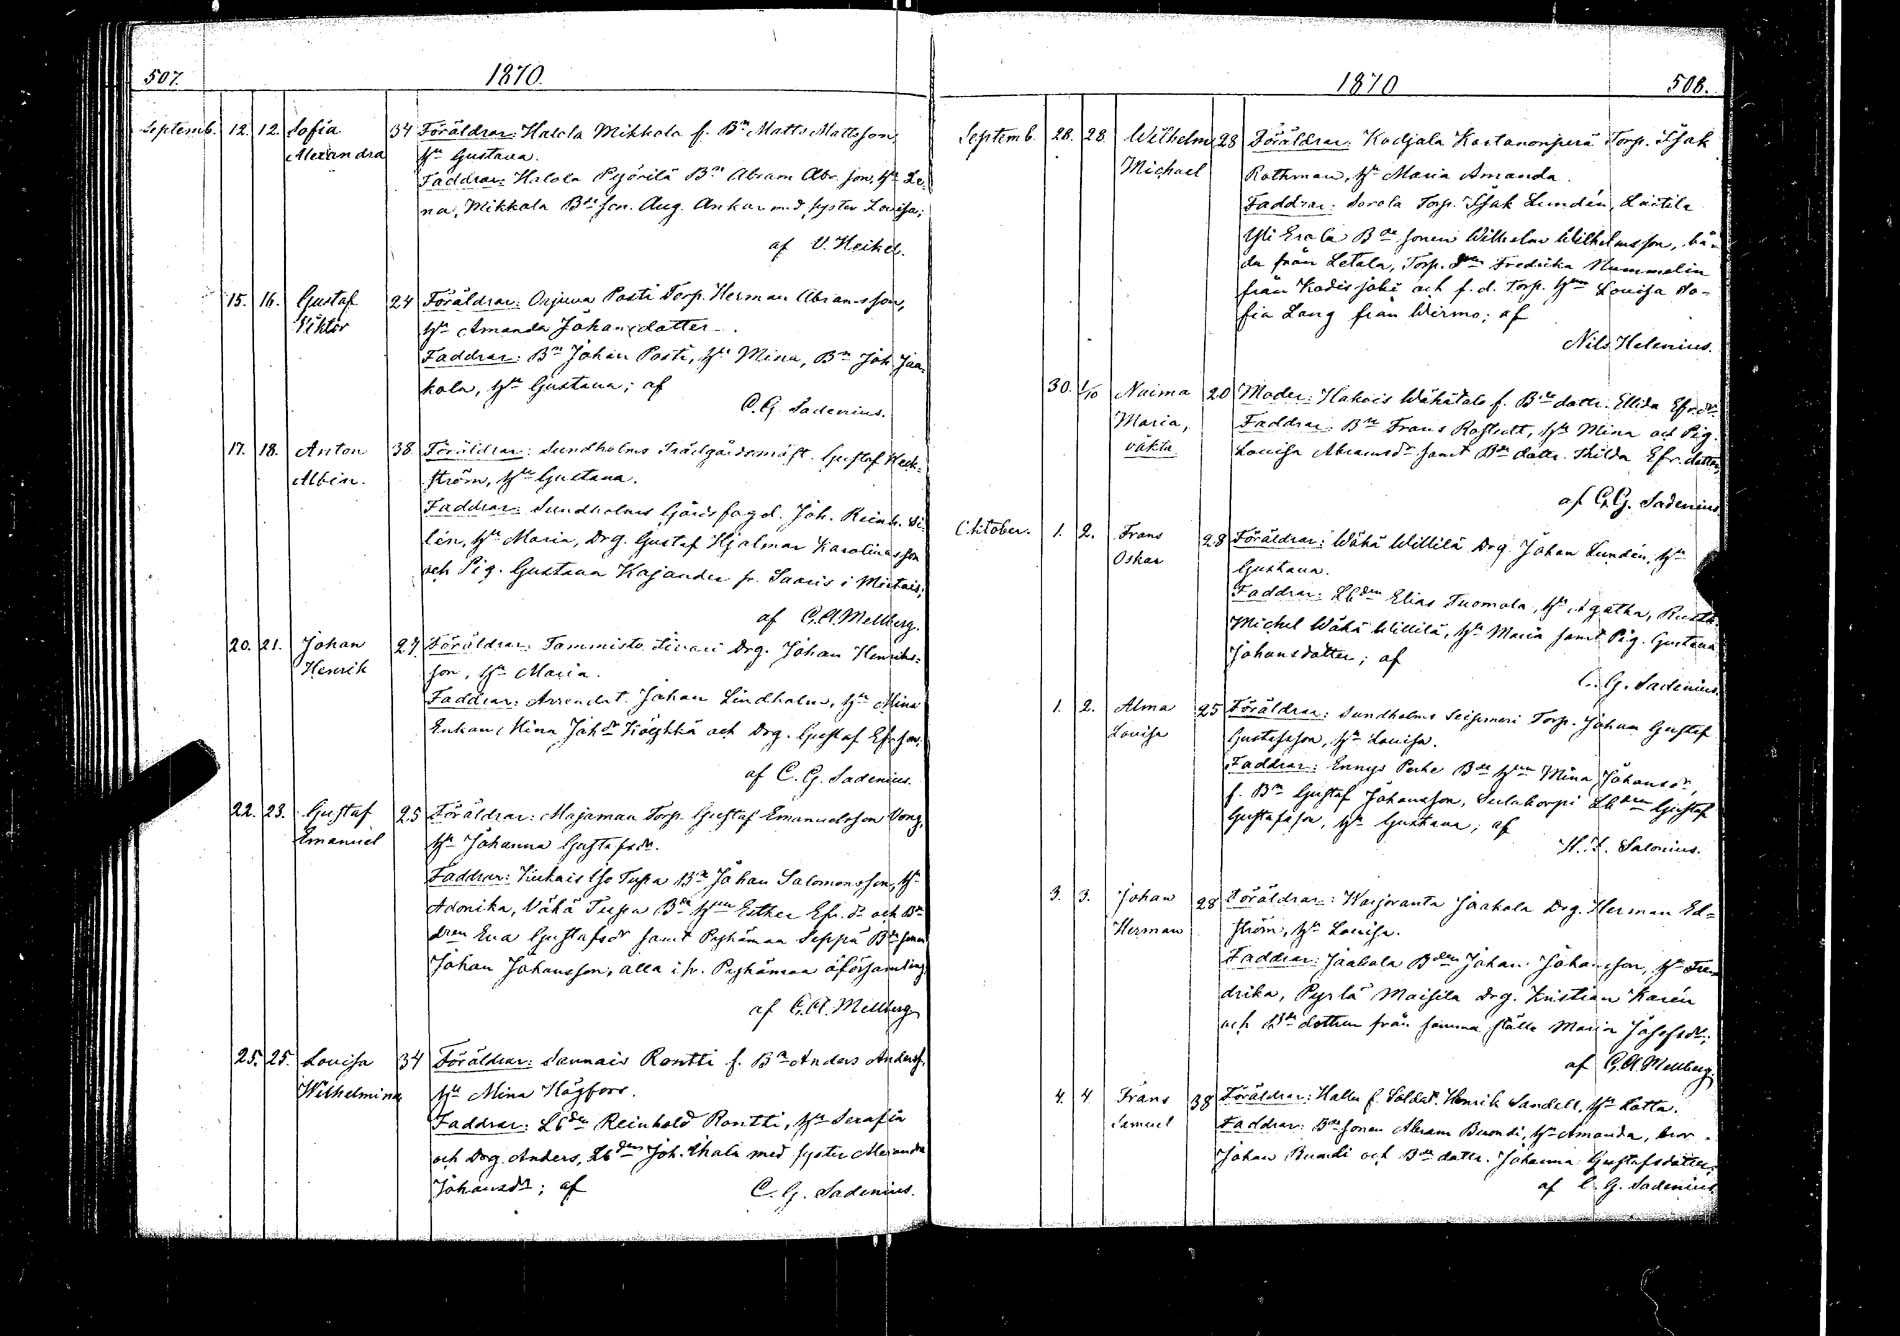 507. 1870.
Septemb. 12. 12. Sofia 34 Föräldrar: Halola Mikkola f. Bn Matts Mattsson,
Alexandra Hn Gustava.
Faddrar: Halola Pyörilä Bn Abram Abr. son, Hn Le-
na, Mikkola Bde son. Aug. Ankar med syster Lovisa;
af V. Heikel.
15. 16. Gustaf 24 Föräldrar: Orjuva Posti Torp. Herman Abramsson,
Viktor Hn Amanda Johansdotter.
Faddrar: Bn Johan Posti, Hn Mina, Bn Joh. Jaa-
kola, Hn Gustava; af
C. G. Sadenius.
17. 18. Anton 38 Föräldrar: Sundholms Trädgårdsmäst. Gustaf Heck-
Albin. ström, Hn Gustava.
Faddrar: Sundholms Gårdsfogd. Joh. Reinh.
lén, Hn Maria, Drg. Gustaf Hjalmar Karolinasson
och Pig. Gustava Kajander fr. Saaris i Mietois;
af C. A. Mellberg.
20. 21. Johan 27 Föräldrar: Tammisto Sivari Drg. Johan Henriks-
Henrik son, Hn Maria.
Faddrar: Arrendat. Johan Lindholm, Hn Mina
Enkan Mina Johdr och Drg. Gustaf Efr. son;
af C. G. Sadenius.
22. 23. Gustaf 25 Föräldrar: Majamaa Torp. Gustaf Emanuelsson
Emanuel Hn Johanna Gustafsdr.
Faddrar: Kukais Iso Tupa Bn Johan Salomonsson, Hn
Adonika, Vähä Tupa Bde Hun Esther Efr. dr och Bde
dren Eva Gustafsdr samt Pyhämaa Seppä Bde sonen
Johan Johansson, alla i fr. Pyhämaa öförsamling;
af C. A. Mellberg
25. 25. Lovisa 34 Föräldrar: Sannais Rontti f. Bn Anders Anderss.
Wilhelmina Hn Mina Högfors.
Faddrar: Lbden Reinhold Rontti, Hn Serafia
och Drg. Anders, Lbden Joh. Ahala med syster Alexandra
Johansdr; af C. G. Sadenius.
1870 508.
Septemb. 28. 28. Wilhelm 28 Föräldrar: Kodjala Kortanonperä Torp. Isak
Michael Rothman, Hn Maria Amanda.
Faddrar: Sorola Torp. Isak Lundén, Laitila
Yli Erola Bde sonen Wilhelm Wilhelmsson, bå-
da från Letala, Torp. dren Fredrika Nummelin
från Kodisjoki och f. d. Torp. Hun Lovisa So-
fia Lang från Wirmo; af
Nils Helenius.
30. 1/10 Naima 20 Moder: Hakois Wähätalo f. Bde dottr. Elida Efr. dr.
Maria, Faddrar: Bn Frans Rostedt, Hn Mina och Pig.
oäkta Lovisa Abramsdr samt Bde dottr. Hilda Efr. dotter;
af C. G. Sadenius
October. 1. 2. Frans 28 Föräldrar: Wähä Willilä Drg. Johan Lundén, Hn
Oskar Gustava.
Faddrar: Lbden Elias Tuomola, Hn Agatha, Rusth.
Michel Wähä Willilä, Hn Maria samt Pig. Gustava
Johansdotter; af
C. G. Sadenius.
1. 2. Alma 25 Föräldrar: Sundholms Torp. Johan Gustaf
Lovisa Gustafsson, Hn Lovisa.
Faddrar: Ennys Perhe Bde Hun Mina Johansdr,
f. Bn Gustaf Johansson, Sulahorpi Lbden Gustaf
Gustafsson, Hn Gustava; af
H. F. Salonius.
3. 3. Johan 28 Föräldrar: Warjoranta Jaakola Drg. Herman Ed-
Herman ström, Hn Lovisa.
Faddrar: Jaakola Bden Johan Johansson, Hn Fre-
drika, Maisila Drg. Kristian Karén
och Bde dottren från samma ställe Maria Josefsdr;
af C. A. Mellberg
4. 4 Frans 38 Föräldrar: Hallu f. Soldat. Henrik Sandell, Hn Lotta.
Samuel Faddrar: Bde sonen Abram Buondi, Hn Amanda, bror
Johan Buondi och Bde dottr. Johanna Gustafsdotter;
af C. G. Sadenius